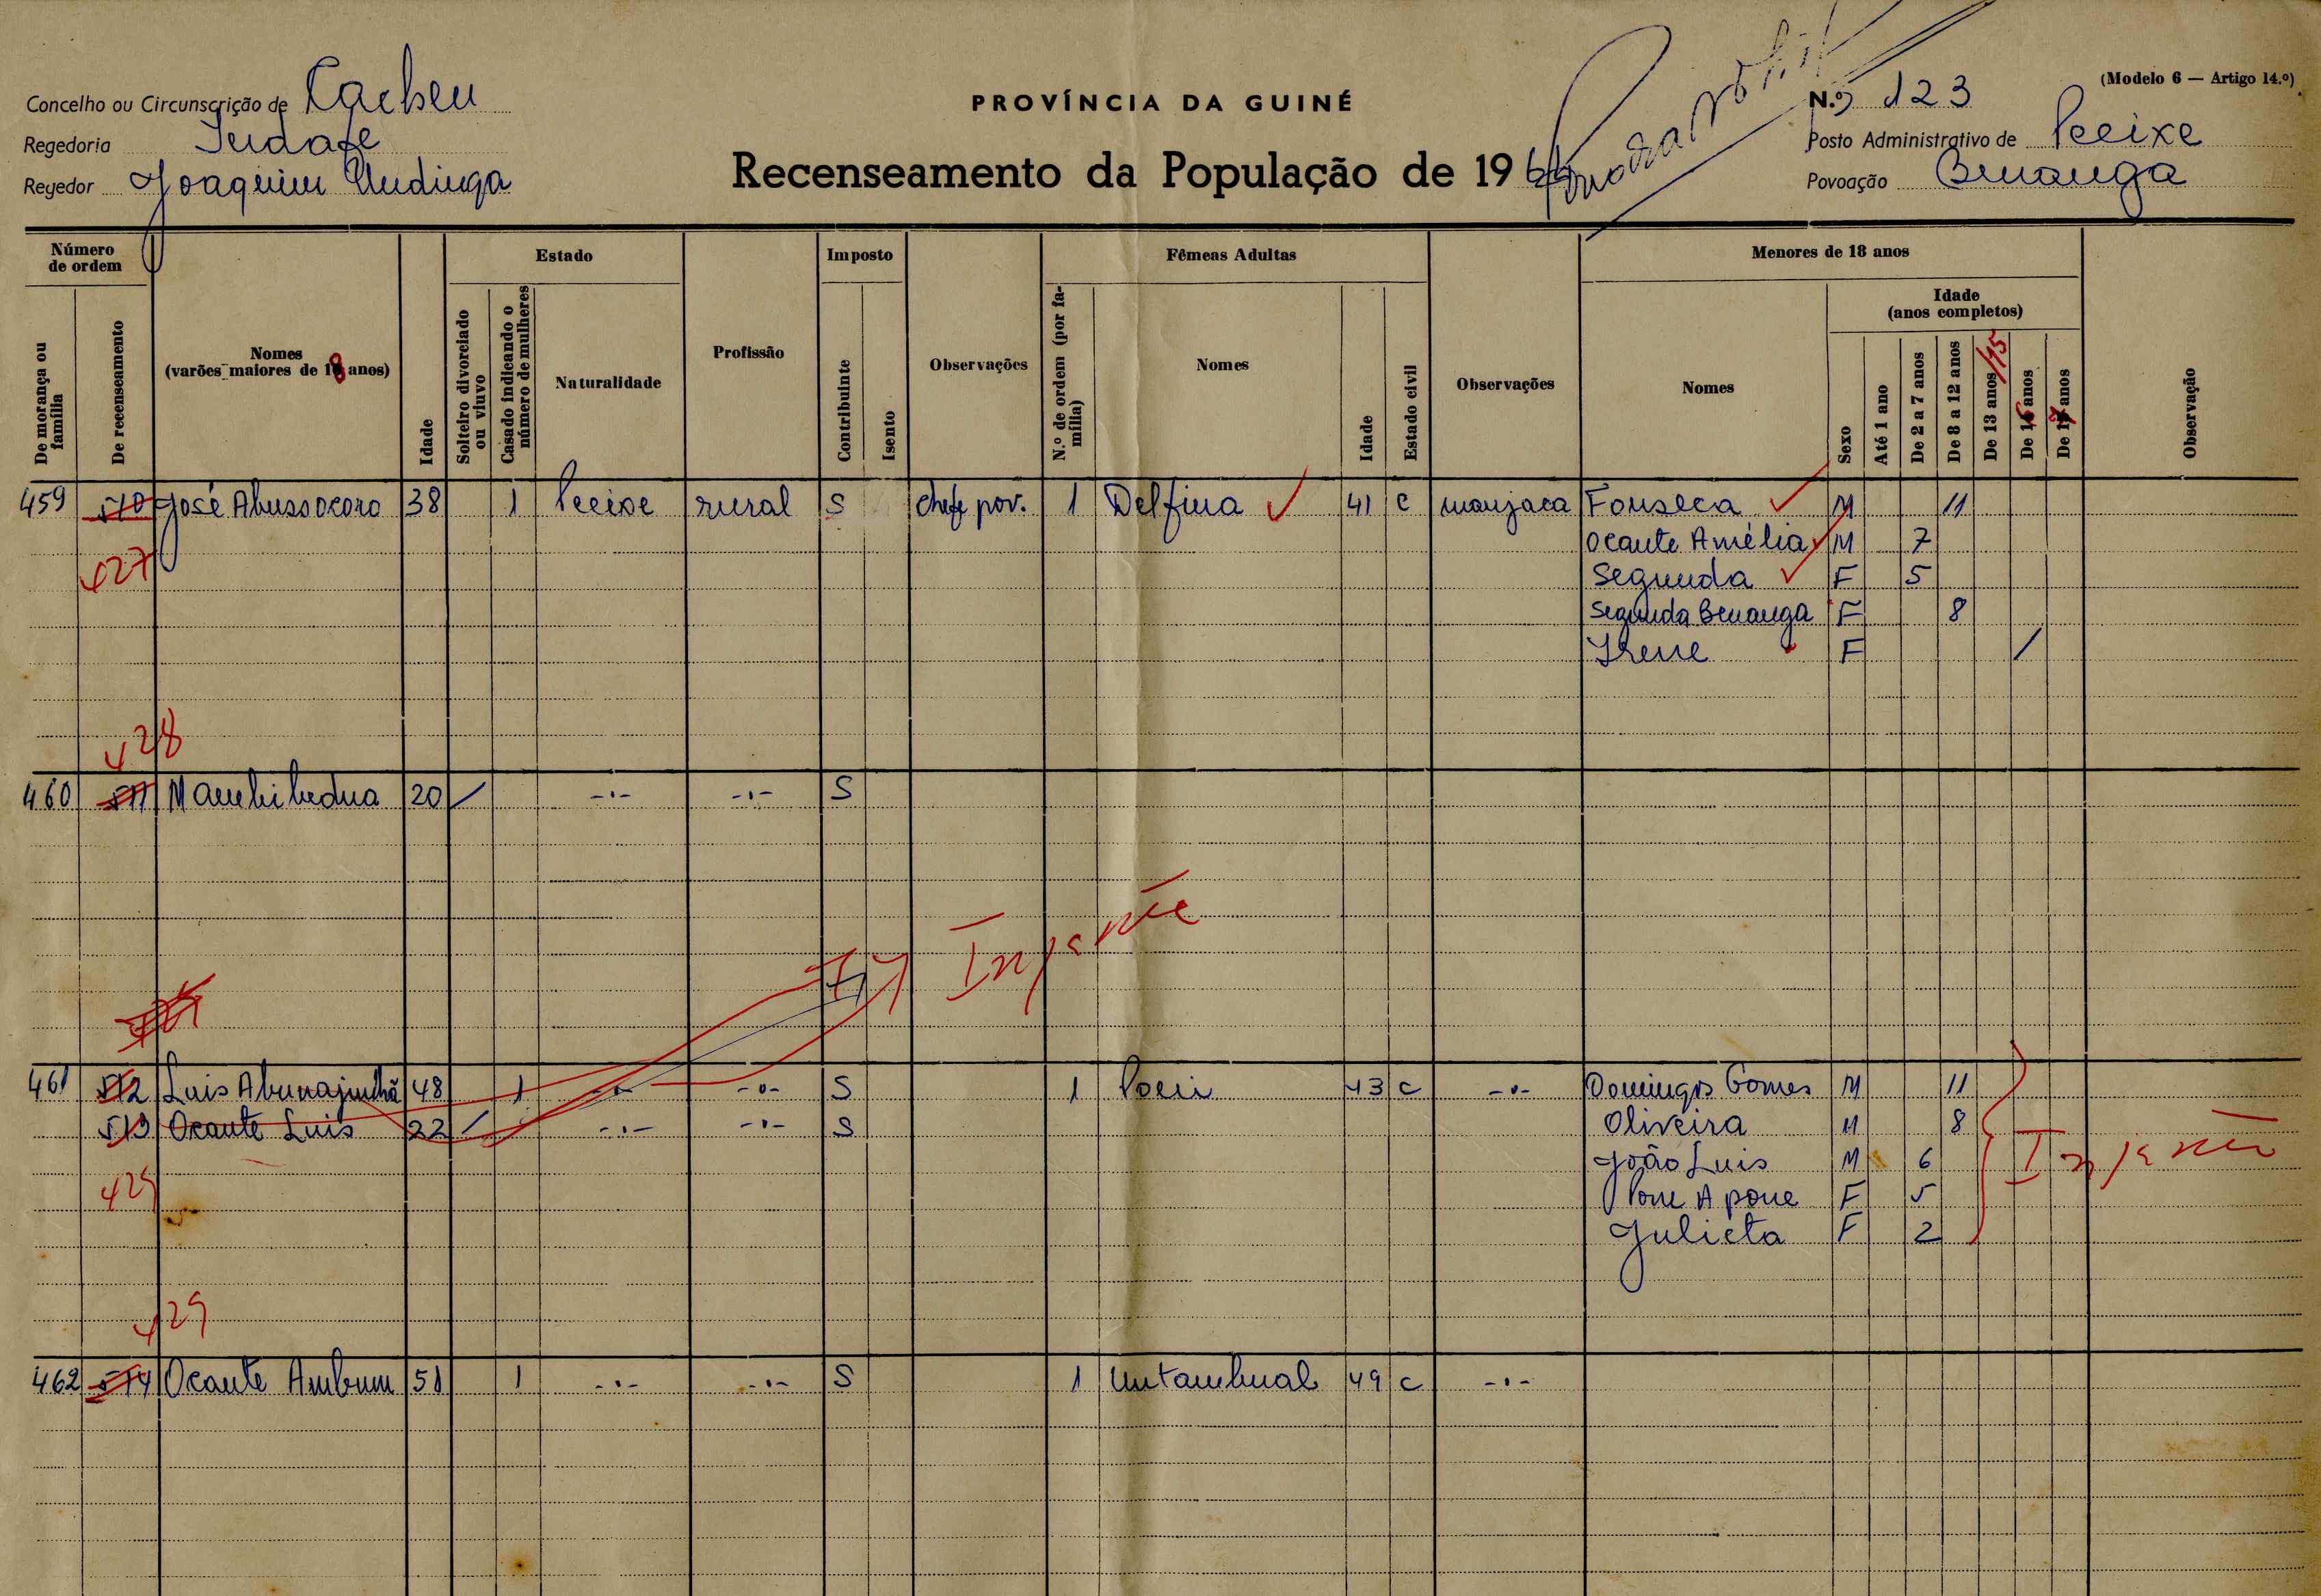 (Modelo 6 — Artigo 14.º)
Concelho ou Circunscrição de Cacheu
PROVÍNCIA DA GUINÉ
N.º 123
Regedoria
Posto Administrativo de Pecixe
Regedor Joaquim Undinga
Recenseamento da População de 1964
Povoação Benanga
Número de ordem
De morança ou família
De recenseamento
Nomes
(varões maiores de 18 anos)
Idade
Estado
Solteiro divorciado ou viuvo
Casado indicando o número de mulheres
Naturalidade
Profissão
Imposto
Contribuinte
Isento
Observações
Fêmeas Adultas
N.º de ordem (por família)
Nomes
Idade
Estado civil
Observações
Menores de 18 anos
Nomes
Idade
(anos completos)
Sexo
Até 1 ano
De 2 a 7 anos
De 8 a 12 anos
De 13 anos/15
De 16 anos
De 17 anos
Observação
459 510 José Abussocoro 38 1 Pecixe rural S chefe pov. 1 Delfina 41 C manjaca Fonseca M 11
Ocante Amélia M 7
427
Segunda F 5
Segunda Benanga F 8
Irene F /
428
460 511 20 / -·- -·- S
461 512 Luis 48 1 -·- -·- S 1 43 C -·- Domingos Gomes M 11
513 Ocante Luis 22 / -·- -·- S Oliveira M 8
João Luis M 6
429 Pone A pone F 5
Julieta F 2
429
462 514 Ocante Ambum 51 1 -·- -·- S 1 Untambual 49 C -·-